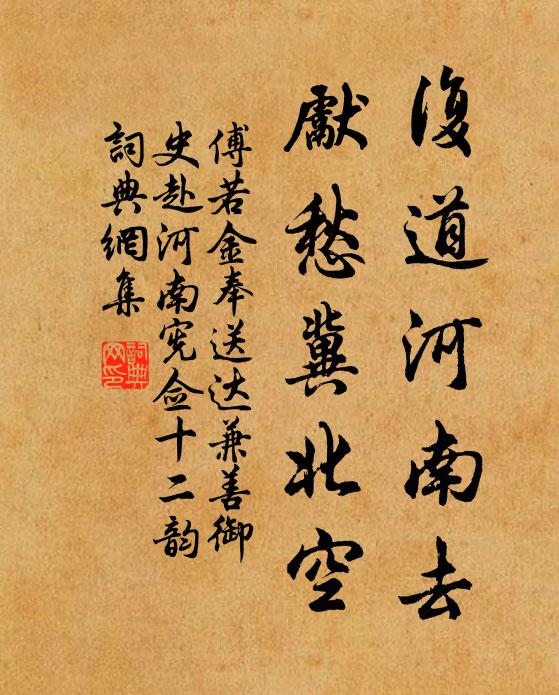 復道河南去
獻愁冀北空
傅若金奉送达兼善御
史赴河南宪佥十二韵
詞典網集
詞典网印